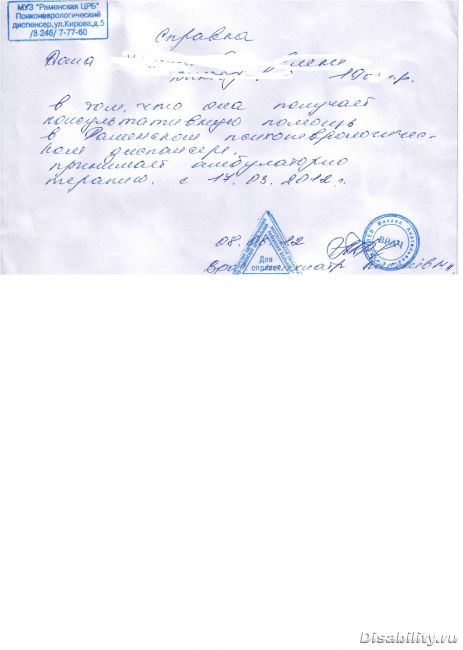 МУЗ "Раменская ЦРБ"
Психоневрологический
диспенсер,ул.Кирова,д.5
/8 246/ 7-77-60
Справка
Дана
г.р.
в том, что она получает
консультативную помощь
в Раменском психоневрологичес-
ком диспансере.
принимает амбулаторно
терапию. с 17. 03. 2012 г.
08. 12
ВРАЧ
Для
справок
Disability.ru